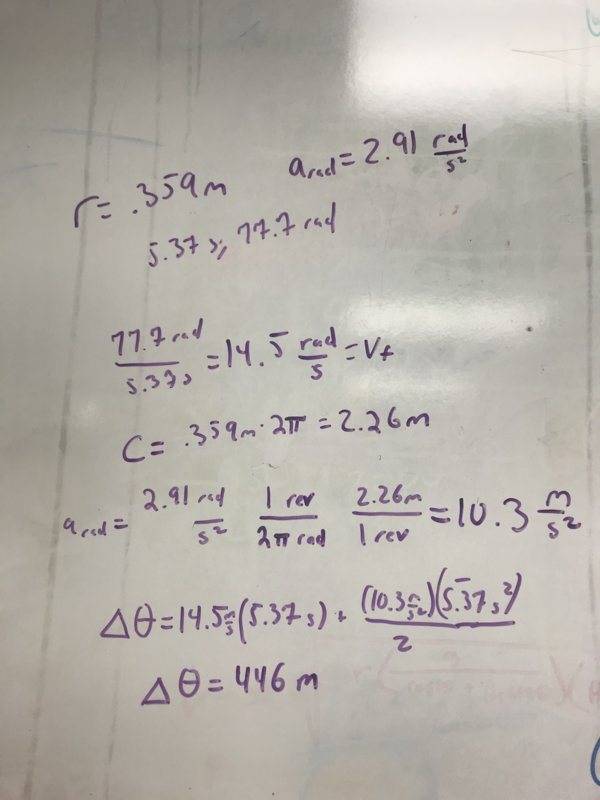 r = .359 m
a_rad = 2.91 rad/s²
5.37 s, 77.7 rad
77.7 rad / 5.37 s = 14.5 rad/s = V_f
C = .359 m · 2π = 2.26 m
a_rad = 2.91 rad/s² 1 rev/2π rad 2.26 m/1 rev = 10.3 m/s²
Δθ = 14.5 m/s (5.37 s) + (10.3 m/s²)(5.37 s²)/2
Δθ = 446 m